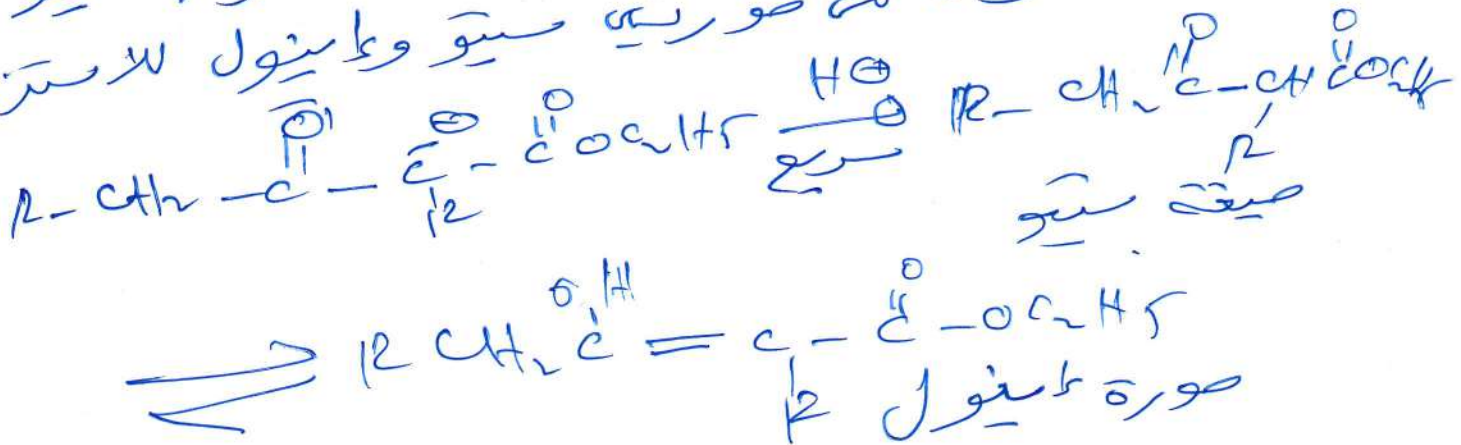 صورتي سيتو وإينول للاستر
R-CH2-C(=O)-C⊖(R)-C(=O)OC2H5 H⊕ سريع R-CH2-C(=O)-CH(R)-C(=O)OC2H5
صيغة سيتو
⇌ RCH2C(OH)=C(R)-C(=O)-OC2H5
صورة إينول